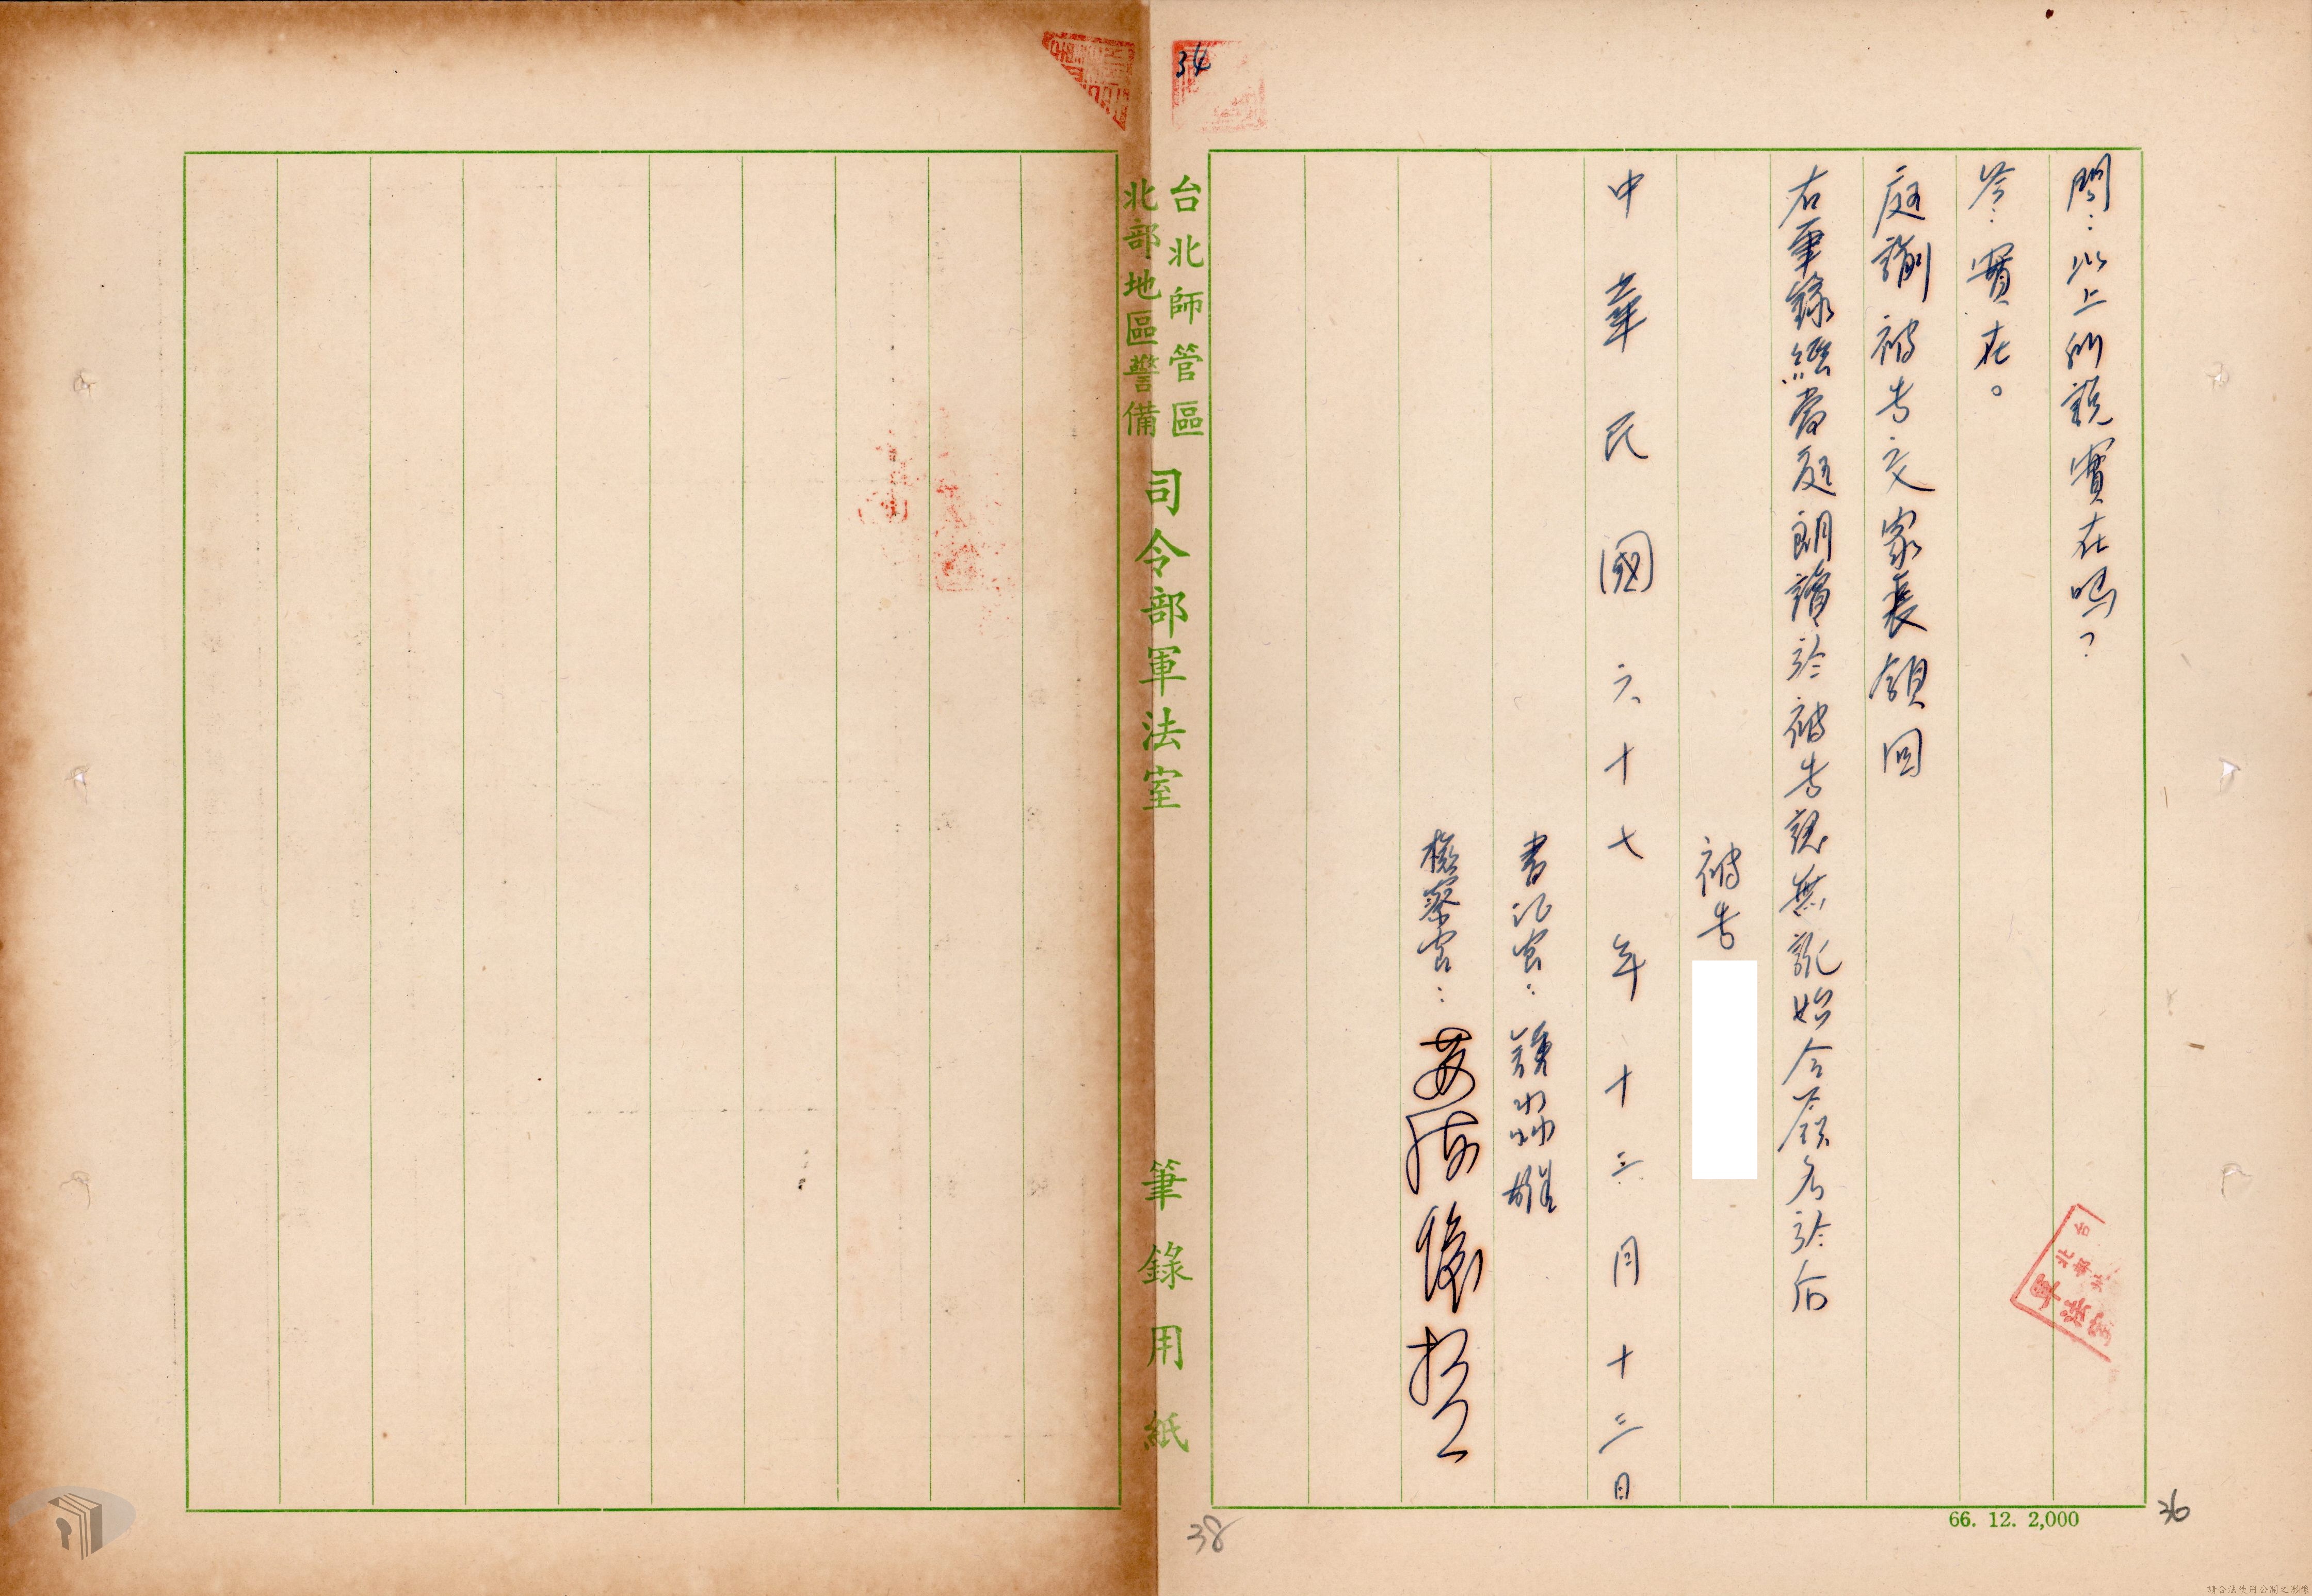 問：以上所說實在嗎？
答：實在。
庭諭被告交家裏領回
右筆錄經當庭朗讀於被告認無訛始令簽名於后
被告
中華民國六十七年十三月十三日
書記官：
檢察官：
台北師管區
北部地區警備
司令部軍法室
筆錄用紙
34
66. 12. 2,000
36
38
請合法使用公開之影像